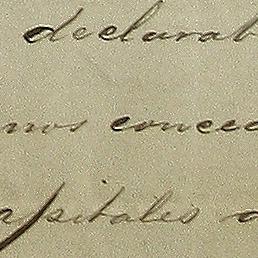 declarab
mos conced
apitales a